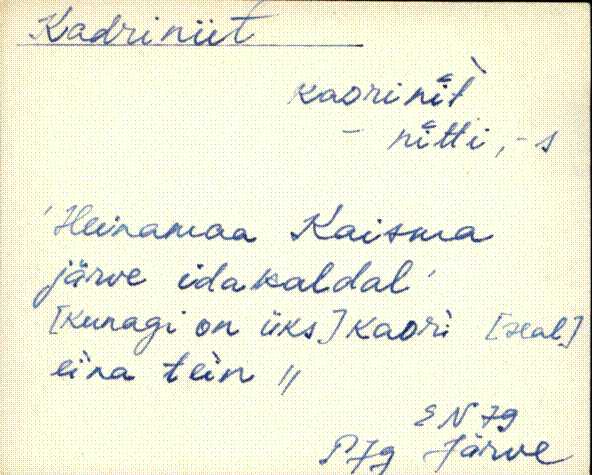 Kadriniit
kaorinīt̀
- nītti, -s
'Heinamaa Kaisma
järve idakaldal'
[kunagi on üks] kaori [seal]
eina tein //
EN Jg
PJg Järve